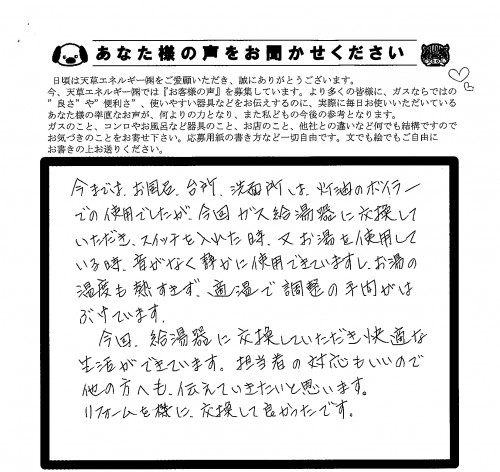 あなた様の声をお聞かせください
日頃は天草エネルギー㈱をご愛顧いただき、誠にありがとうございます。
今、天草エネルギー㈱では『お客様の声』を募集しています。より多くの皆様に、ガスならではの
"良さ"や"便利さ"、使いやすい器具などをお伝えするのに、実際に毎日お使いいただいている
あなた様の率直なお声が、何よりの力となり、また私どもの今後の参考となります。
ガスのこと、コンロやお風呂など器具のこと、お店のこと、他社との違いなど何でも結構ですので
お気づきのことをお寄せ下さい。応募用紙の書き方など一切自由です。文でも絵でもご自由に
お書きの上お送りください。
今までは、お風呂、台所、洗面所は、灯油のボイラー
での使用でしたが、今回ガス給湯器に交換して
いただき、スイッチを入れた時、又お湯を使用して
いる時、音がなく静かに使用できていますし、お湯の
温度も熱すぎず、適温で調整の手間がは
ぶけています。
今回、給湯器に交換していただき快適な
生活ができています。担当者の対応もいいので
他の方へも、伝えていきたいと思います。
リフォームを機に、交換して良かったです。